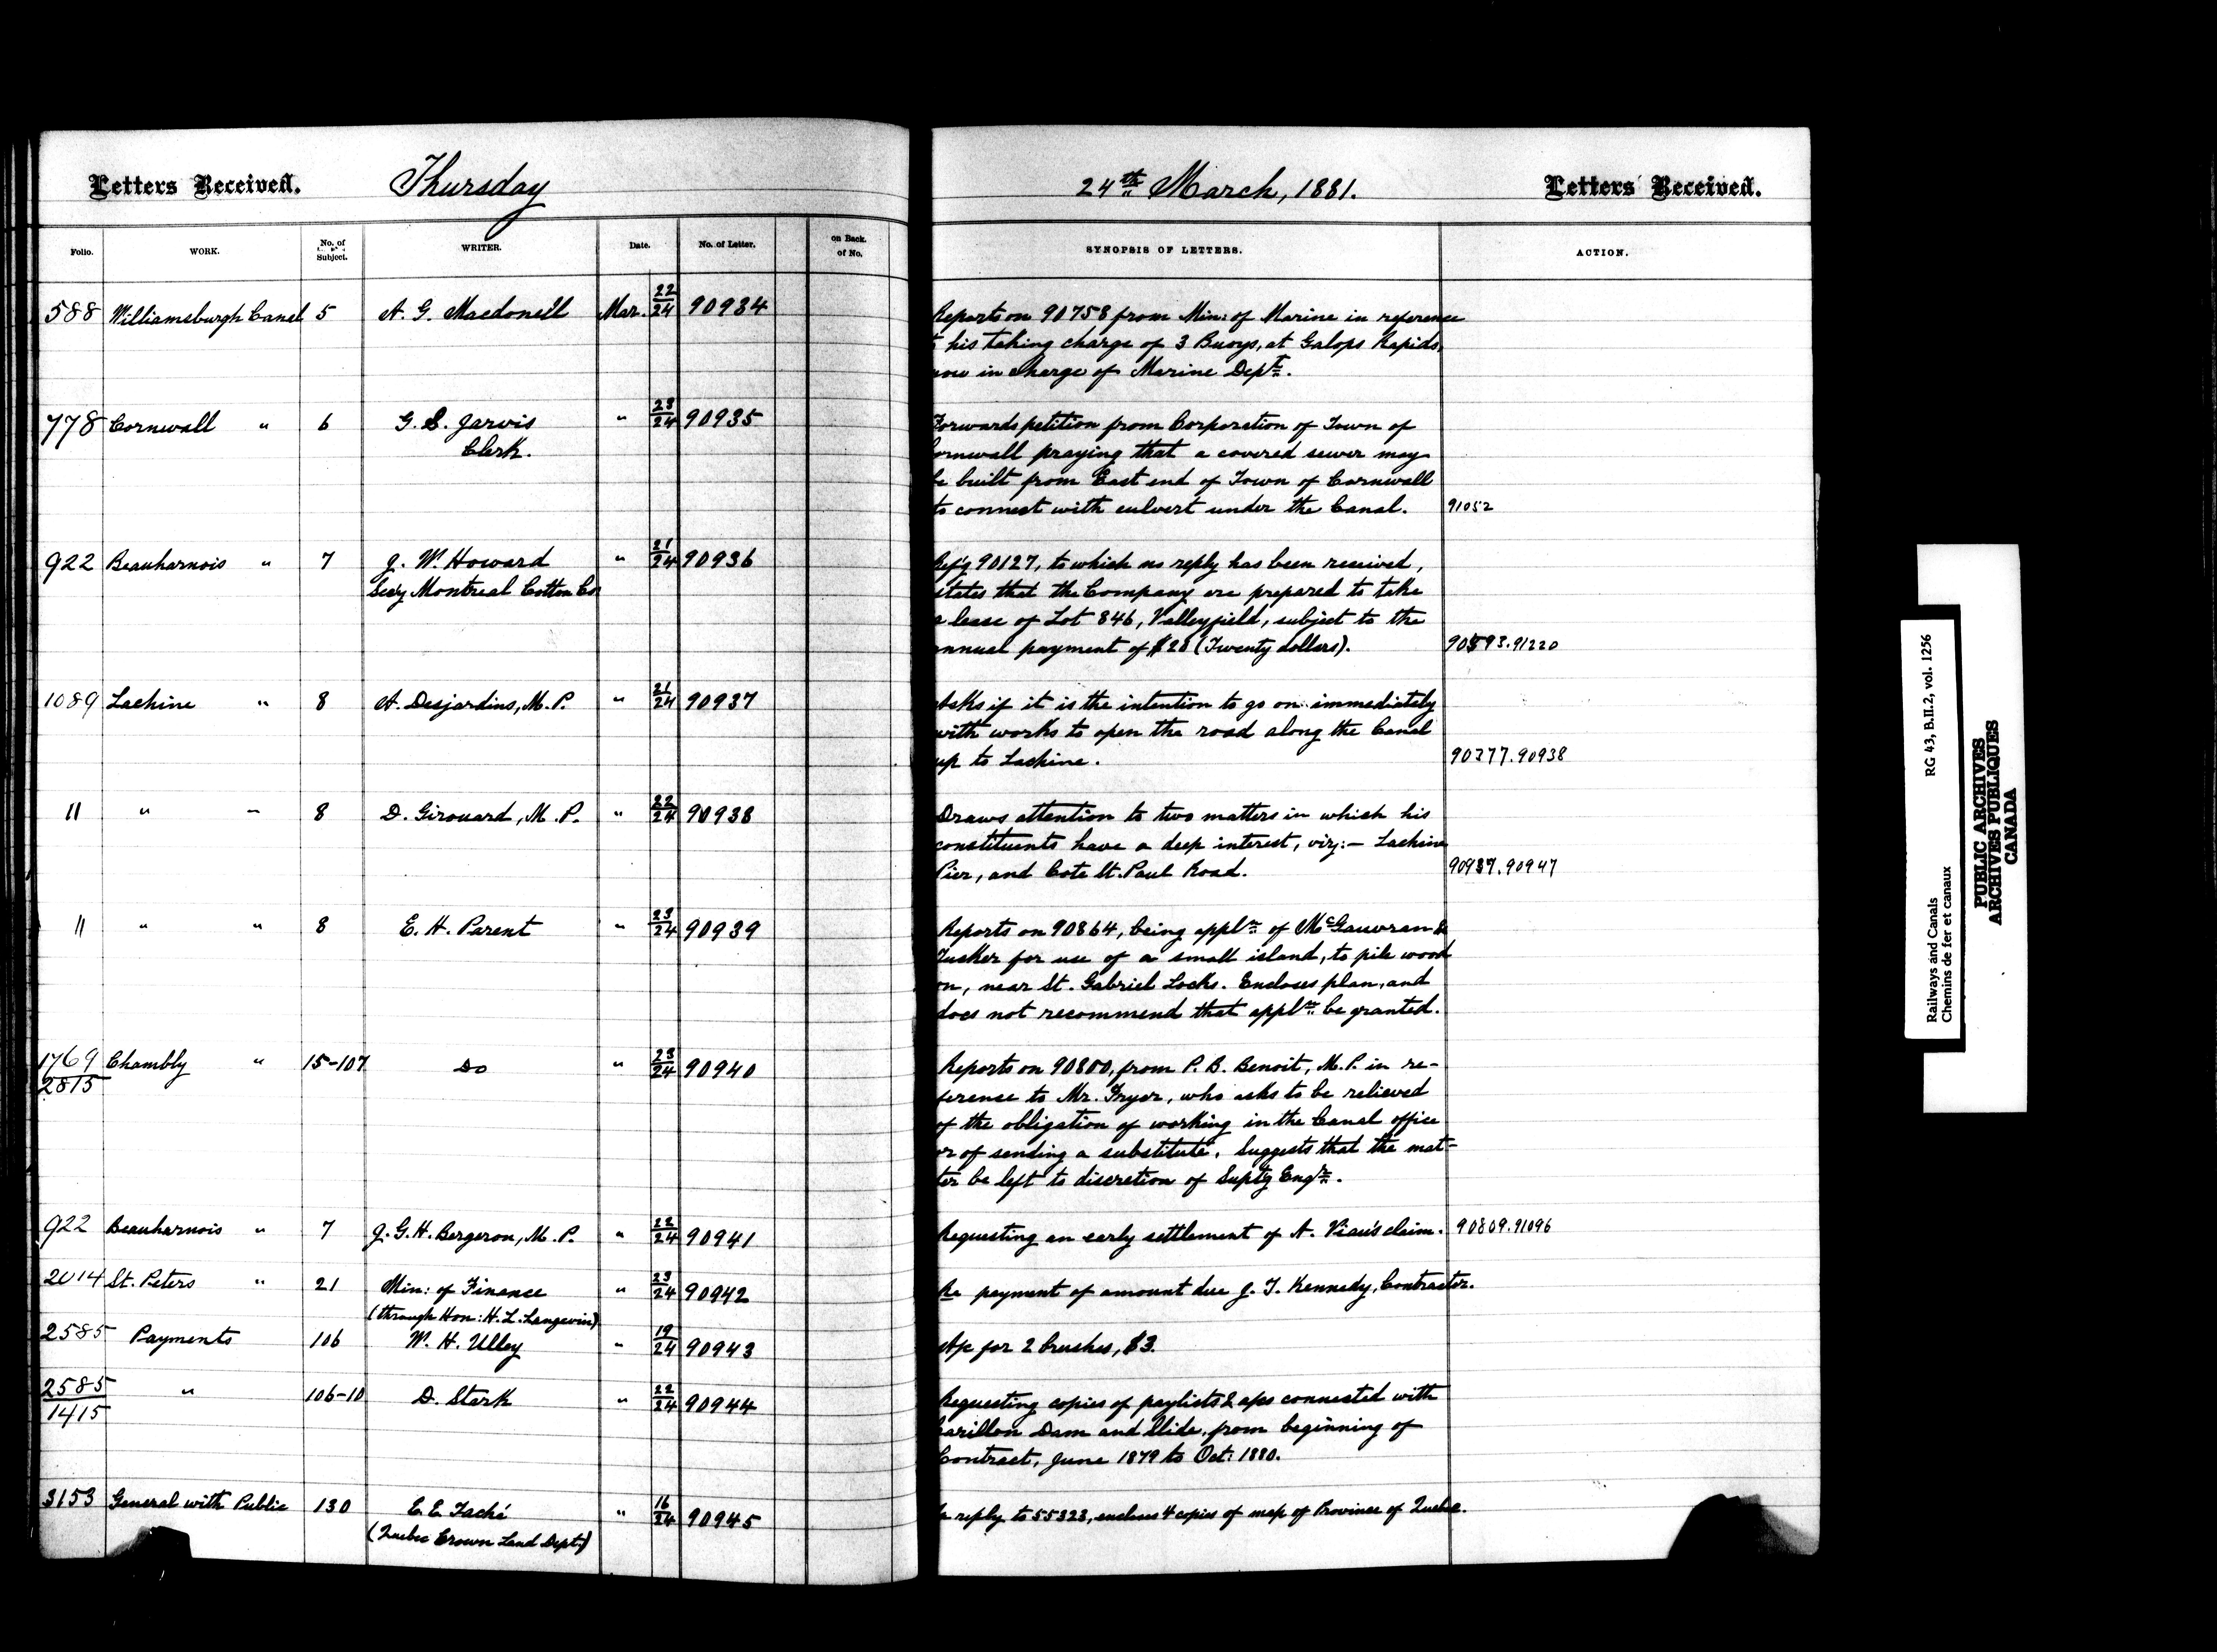 Letters Received. Thursday 24th March, 1881. Letters Received.
Folio. WORK. No. of Subject. WRITER. Date. No. of Letter. on Back. of No. SYNOPSIS OF LETTERS. ACTION.
588 Williamsburgh Canal 5 A. G. Macdonell Mar. 22/24 90934
Reports on 90758 from Min: of Marine in reference
his taking charge of 3 Buoys, at Galops Rapids,
now in charge of Marine Dept.
778 Cornwall " 6 G. S. Jarvis " 23/24 90935
Clerk.
Forwards petition from Corporation of Town of
Cornwall praying that a covered sewer may
be built from East end of Town of Cornwall
to connect with culvert under the Canal. 91052
922 Beauharnois " 7 J. W. Howard " 21/24 90936
Secy Montreal Cotton Co
Ref'g 90127, to which no reply has been received,
states that the Company are prepared to take
a lease of Lot 846, Valleyfield, subject to the
annual payment of $20 (Twenty dollars). 90593.91220
1089 Lachine " 8 A. Desjardins, M.P. " 21/24 90937
Asks if it is the intention to go on immediately
with works to open the road along the Canal
up to Lachine. 90377.90938
11 " " 8 D. Girouard, M.P. " 22/24 90938
Draws attention to two matters in which his
constituents have a deep interest, viz:— Lachine
Pier, and Cote St. Paul Road. 90937.90947
11 " " 8 E. H. Parent " 23/24 90939
Reports on 90864, being appln of McGauvran &
Tucker for use of a small island, to pile wood
on, near St. Gabriel Locks. Encloses plan, and
does not recommend that appln be granted.
1769/2815 Chambly " 15-107 Do " 23/24 90940
Reports on 90800, from P. B. Benoit, M.P. in re-
ference to Mr. Fryer, who asks to be relieved
of the obligation of working in the Canal office
or of sending a substitute. Suggests that the mat-
ter be left to discretion of Suptg Engr.
922 Beauharnois " 7 J. G. H. Bergeron, M.P. " 22/24 90941
Requesting an early settlement of A. Viau's claim. 90809.91096
2014 St. Peters " 21 Min: of Finance " 23/24 90942
(through Hon: H. L. Langevin)
Re payment of amount due J. T. Kennedy, Contractor.
2585 Payments 106 W. H. Ulley " 19/24 90943
A/c for 2 brushes, $3.
2585/1415 " 106-10 D. Stark " 22/24 90944
Requesting copies of paylists & a/cs connected with
Carillon Dam and Slide, from beginning of
Contract, June 1879 to Oct: 1880.
3153 General with Public 130 E. E. Taché " 16/24 90945
(Quebec Crown Land Dept)
reply to 55323, encloses 4 copies of map of Province of Quebec.
Railways and Canals RG 43, B.II.2, vol. 1256
Chemins de fer et canaux
PUBLIC ARCHIVES
ARCHIVES PUBLIQUES
CANADA